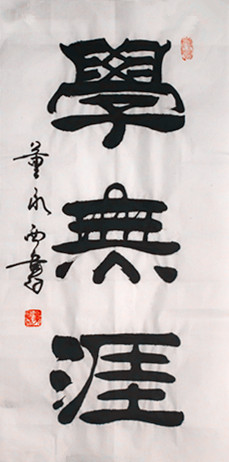 學無涯
董永西書